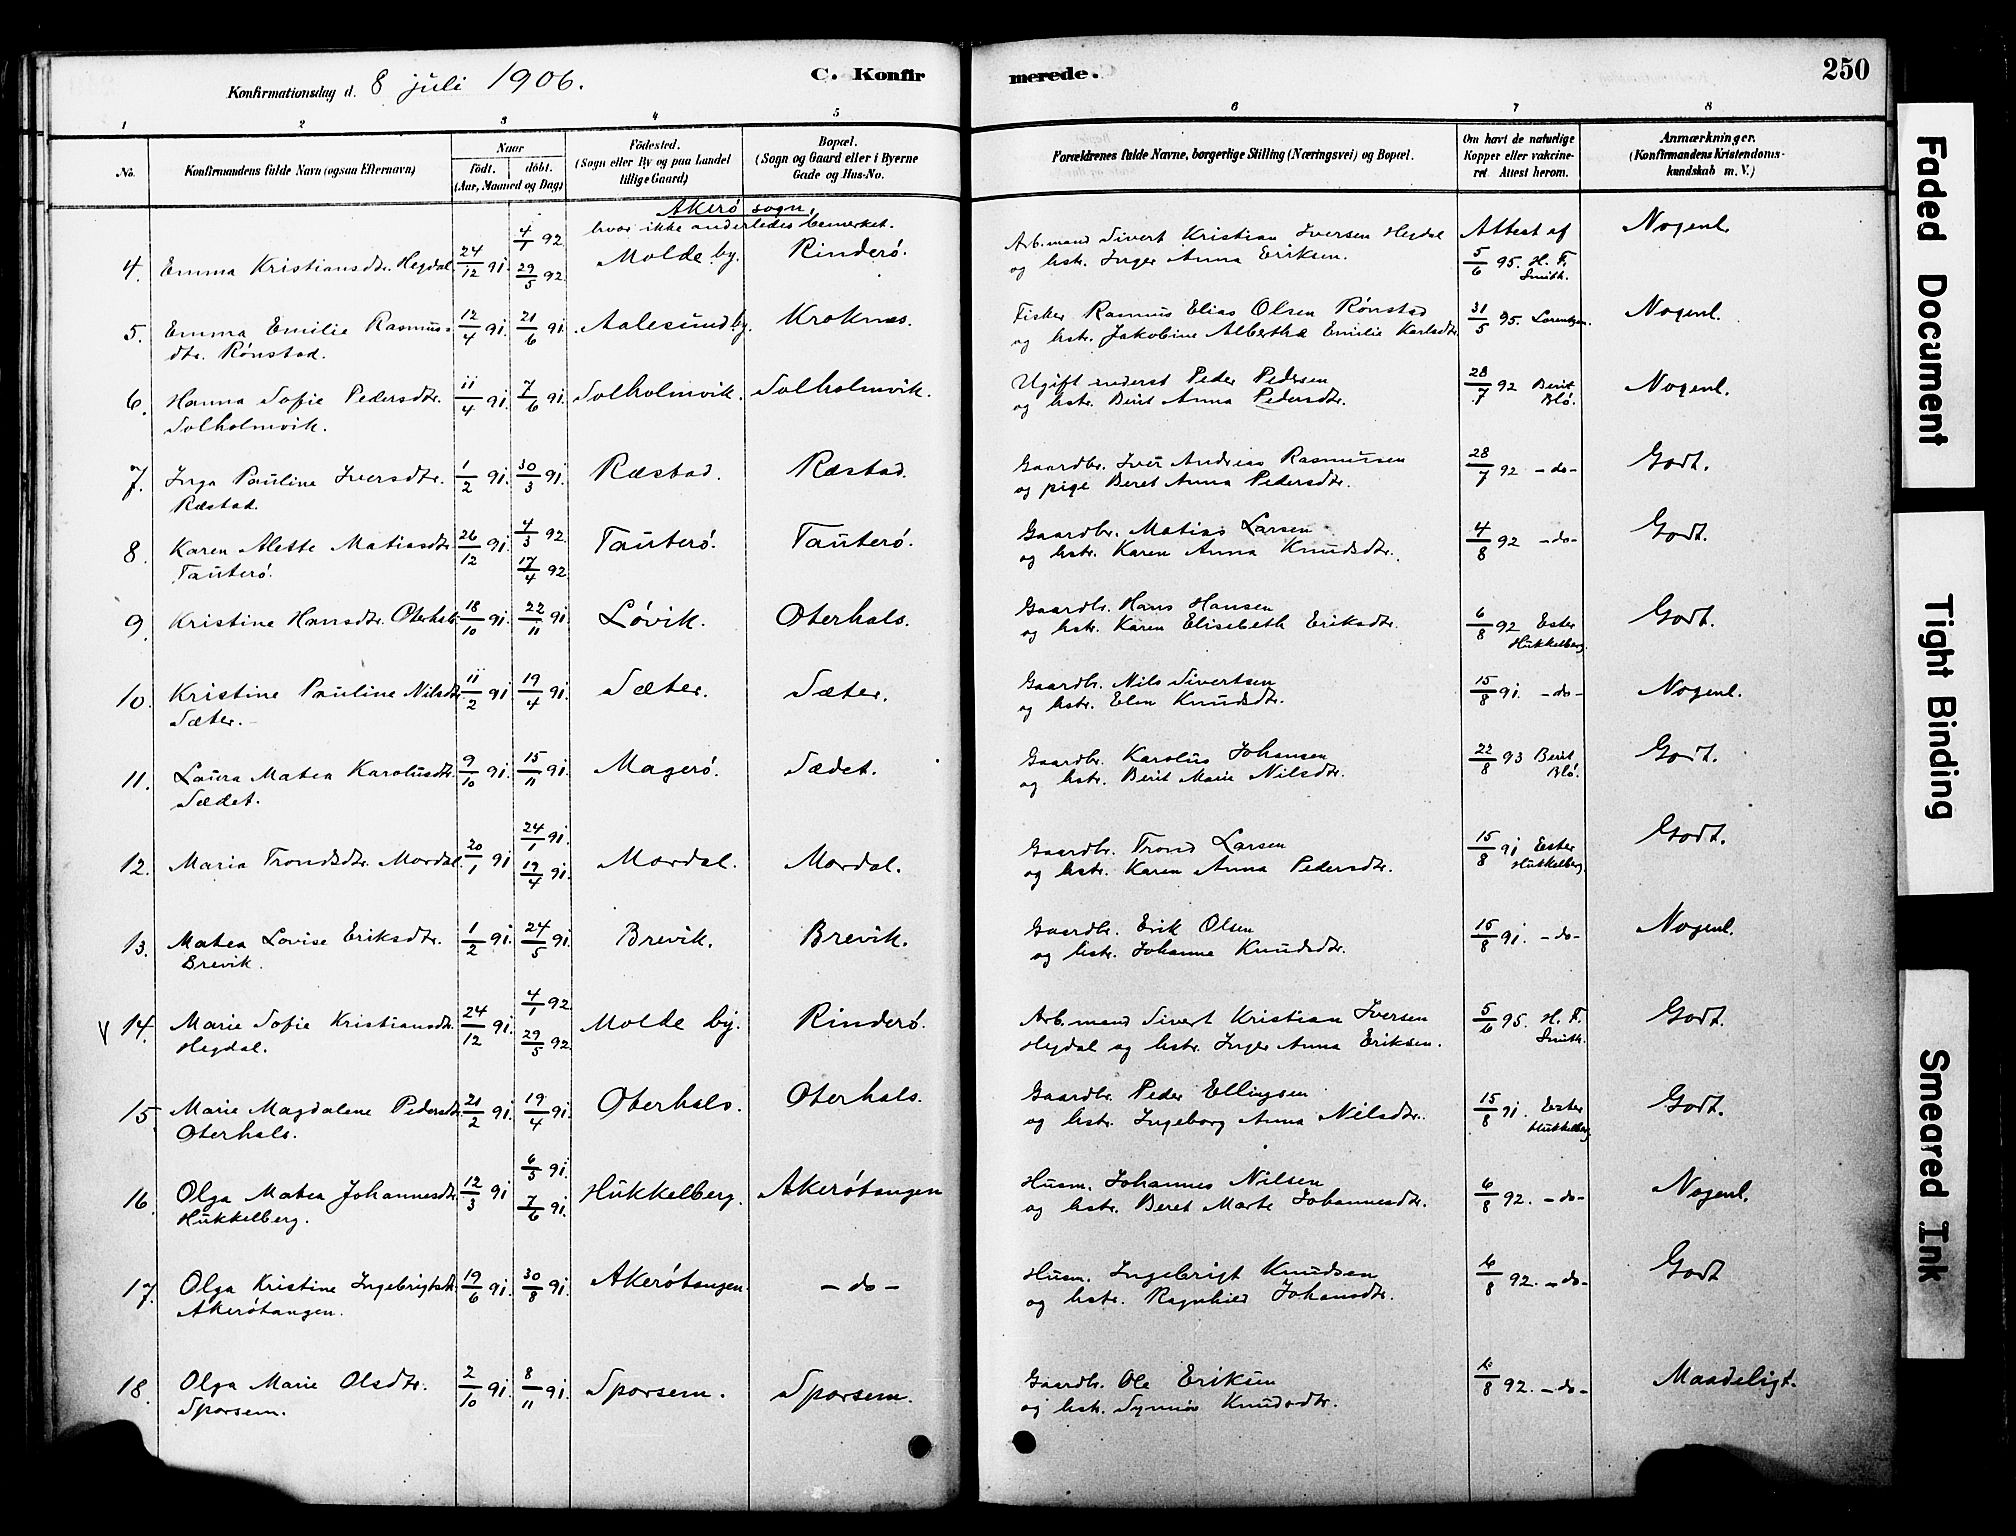 Konfirmationsdag d. 8 juli 1906.
C. Konfir
merede.
250
1 2 3 4 5 6 7 8
No.
Konfirmandens fulde Navn (ogsaa Efternavn)
Naar
födt. döbt.
(Aar, Maaned og Dag)
Födested.
(Sogn eller By og paa Landet
tillige Gaard)
Bopæl.
(Sogn og Gaard eller i Byerne
Gade og Hus-No.
Forældrenes fulde Navne, borgerlige Stilling (Næringsvei) og Bopæl.
Om havt de naturlige
Kopper eller vakcine-
ret. Attest herom.
Anmærkninger.
(Konfirmandens Kristendoms-
kundskab m. V.)
Akerö sogn,
hvor ikke anderledes bemerket.
4. Emma Kristiansdtr. Hegdal. 24/12 91. 4/1 92. 29/5 92. Molde by. Rinderö. Arb.mand Sivert Kristian Iversen Hegdal Attest af Nogenl.
og hstr. Inger Anna Eriksen. 5/6 95. H. F.
Smith.
5. Emma Emilie Rasmus- 12/4 91. 21/6 91. Aalesund by. Kroknes. Fisker Rasmus Elias Olsen Rönstad 31/5 95. Lorentzen. Nogenl.
dtr. Rönstad. og hstr. Jakobine Albertha Emilie Karlsdtr.
6. Hanna Sofie Pedersdtr. 11/4 91. 7/6 91. Solholmvik. Solholmvik. Ugift inderst Peder Pedersen 28/7 92 Berit Nogenl.
Solholmvik. og hstr. Berit Anna Pedersdtr. Blö.
7. Inga Pauline Iversdtr. 1/2 91. 30/3 91. Ræstad. Ræstad. Gaardbr. Iver Andreas Rasmussen 28/7 92 -do- Godt.
Ræstad. og pige Beret Anna Pedersdtr.
8. Karen Alette Matiasdtr. 26/12 91. 4/3 92. 17/4 92. Tauterö. Tauterö. Gaardbr. Matias Larsen 4/8 92 -do- Godt.
Tauterö. og hstr. Karen Anna Knudsdtr.
9. Kristine Hansdtr. Oterhals. 18/10 91. 22/11 91. Lövik. Oterhals. Gaardbr. Hans Hansen 6/8 92 Ester Godt.
og hstr. Karen Elisebeth Eriksdtr. Hukkelberg.
10. Kristine Pauline Nilsdtr. 11/2 91 19/4 91. Sæter. Sæter. Gaardbr. Nils Sivertsen 15/8 91. -do- Nogenl.
Sæter. og hstr. Elen Knudsdtr.
11. Laura Matea Karolusdtr. 9/10 91. 15/11 91. Magerö. Sædet. Gaardbr. Karolus Johansen 22/8 93 Berit Godt.
Sædet. og hstr. Berit Marie Nilsdtr. Blö.
12. Maria Trondsdtr. Mordal. 20/1 91 24/1 91. 19/4 91. Mordal. Mordal. Gaardbr. Trond Larsen 15/8 91 Ester Godt.
og hstr. Karen Anna Pedersdtr. Hukkelberg.
13. Matea Lovise Eriksdtr. 1/2 91. 24/5 91. Brevik. Brevik. Gaardbr. Erik Olsen 15/8 91. -do- Nogenl.
Brevik. og hstr. Johanne Knudsdtr.
V 14. Marie Sofie Kristiansdtr. 24/12 91. 4/1 92 29/5 92. Molde by. Rinderö. Arb.mand Sivert Kristian Iversen 5/6 95. H. F. Godt.
Hegdal. Hegdal og hstr. Inger Anna Eriksen. Smith.
15. Marie Magdalene Pedersdtr. 21/2 91. 19/4 91. Oterhals. Oterhals. Gaardbr. Peder Ellingsen 15/8 91. Ester Godt.
Oterhals. og hstr. Ingeborg Anna Nilsdtr. Hukkelberg
16. Olga Matea Johannesdtr. 12/3 91 6/5 91. 7/6 91. Hukkelberg. Akerötangen Husm. Johannes Nilsen 6/8 92. -do- Nogenl.
Hukkelberg. og hstr. Beret Marte Johannesdtr.
17. Olga Kristine Ingebrigtsdtr. 19/6 91. 30/8 91. Akerötangen. -do- Husm. Ingebrigt Knudsen 6/8 92. -do- Godt
Akerötangen. og hstr. Ragnhild Johansdtr.
18. Olga Marie Olsdtr. 2/10 91. 8/11 91. Sporsem. Sporsem. Gaardbr. Ole Eriksen 6/8 92. -do- Maadeligt.
Sporsem. og hstr. Synnöv Knudsdtr.
Faded Document
Tight Binding
Smeared Ink